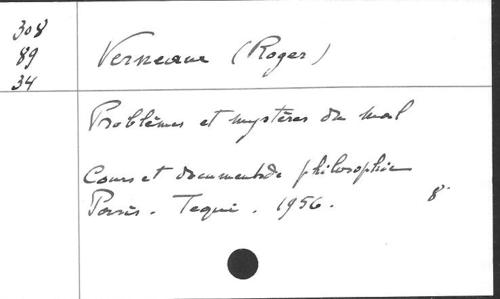 308
89
34
Verneaux (Roger)
Problèmes et mystères du mal
Cours et documents de philosophie
Paris. Tequi. 1956. 8°